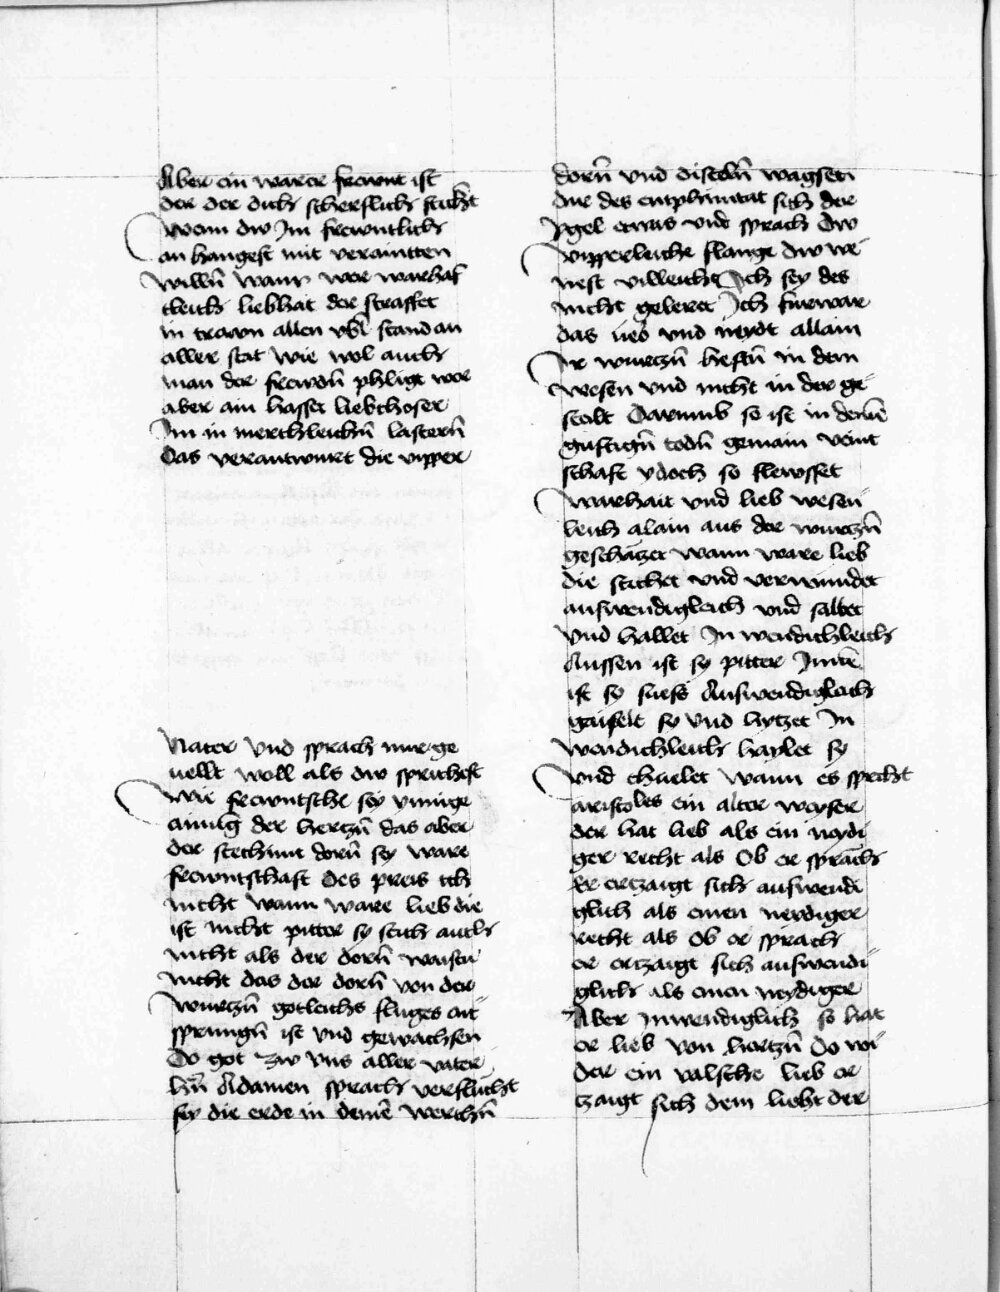 Aber ein warer frewnt ist
der der dich scherflich sticht
wenn dw Im frewntlich
an hangest mit veraintten
willn̄ wann wer warhaf
tleich liebhat der straffet
in trawn allen vbl stand an
aller stat wie wol auch
man der frewdn̄ phligt wer
aber ain hasser liebkhoser
Im in merchleichn̄ lastern̄
das verantwurt die vipper
Nater vnd sprach mir ge
uellt woll als dw sprichest
wie frewntsche sey ynnige
ainūg der hertzn̄ das aber
der stechunt dorn̄ sey ware
frewntschaft des preis ich
nicht wann ware lieb die
ist nicht pitter sy stich auch
nicht als der dorn̄ wisst
nicht das der dorn̄ von der
wurczn̄ gotleichs fluges ent
sprungn̄ ist vnd gewachsen
Do got zw vns aller vater
hn̄ Adamen sprach verflucht
sey die erde in deinē werchn̄
dorn̄ vnd disteln̄ wagsen
dir des entphrimtat sich der
Igel etwas vnd sprach dw
vipperleiche slange dw we
nest villeicht Ich sey des
nicht geleret Ich fürwar
das lieb vnd neydt allain
Ir wurczn̄ hefftn̄ in dem
wesen vnd nicht in der ge
stalt Darumb so ist in denē
gistign̄ todn̄ gemain veint
schaft ydoch so flewsset
warhait vnd lieb wesen
leich alain aus der wurczn̄
geschaczet wann ware lieb
die stichet vnd verwundet
auswendigleich vnd salbet
vnd hallet In wendichleich
Aussen ist sy pitter Innē
ist sy suess Auswendigleich
gaiselt sy vnd hytzet In
wendichleich haylet sy
vnd chuelet wann es spricht
aristoles ein alter weyser
der hat lieb als ein neydi
ger recht als Ob er sprach
Er ertzaigt sich auswendi
glich als einen neydiger
recht als Ob er sprach
er ertzaigt sich auswendi
glich als einen neydiger
Aber inwendiglich so hat
er lieb von hertzn̄ Do wi
der ein valsche lieb er
tzaigt sich dem liecht der